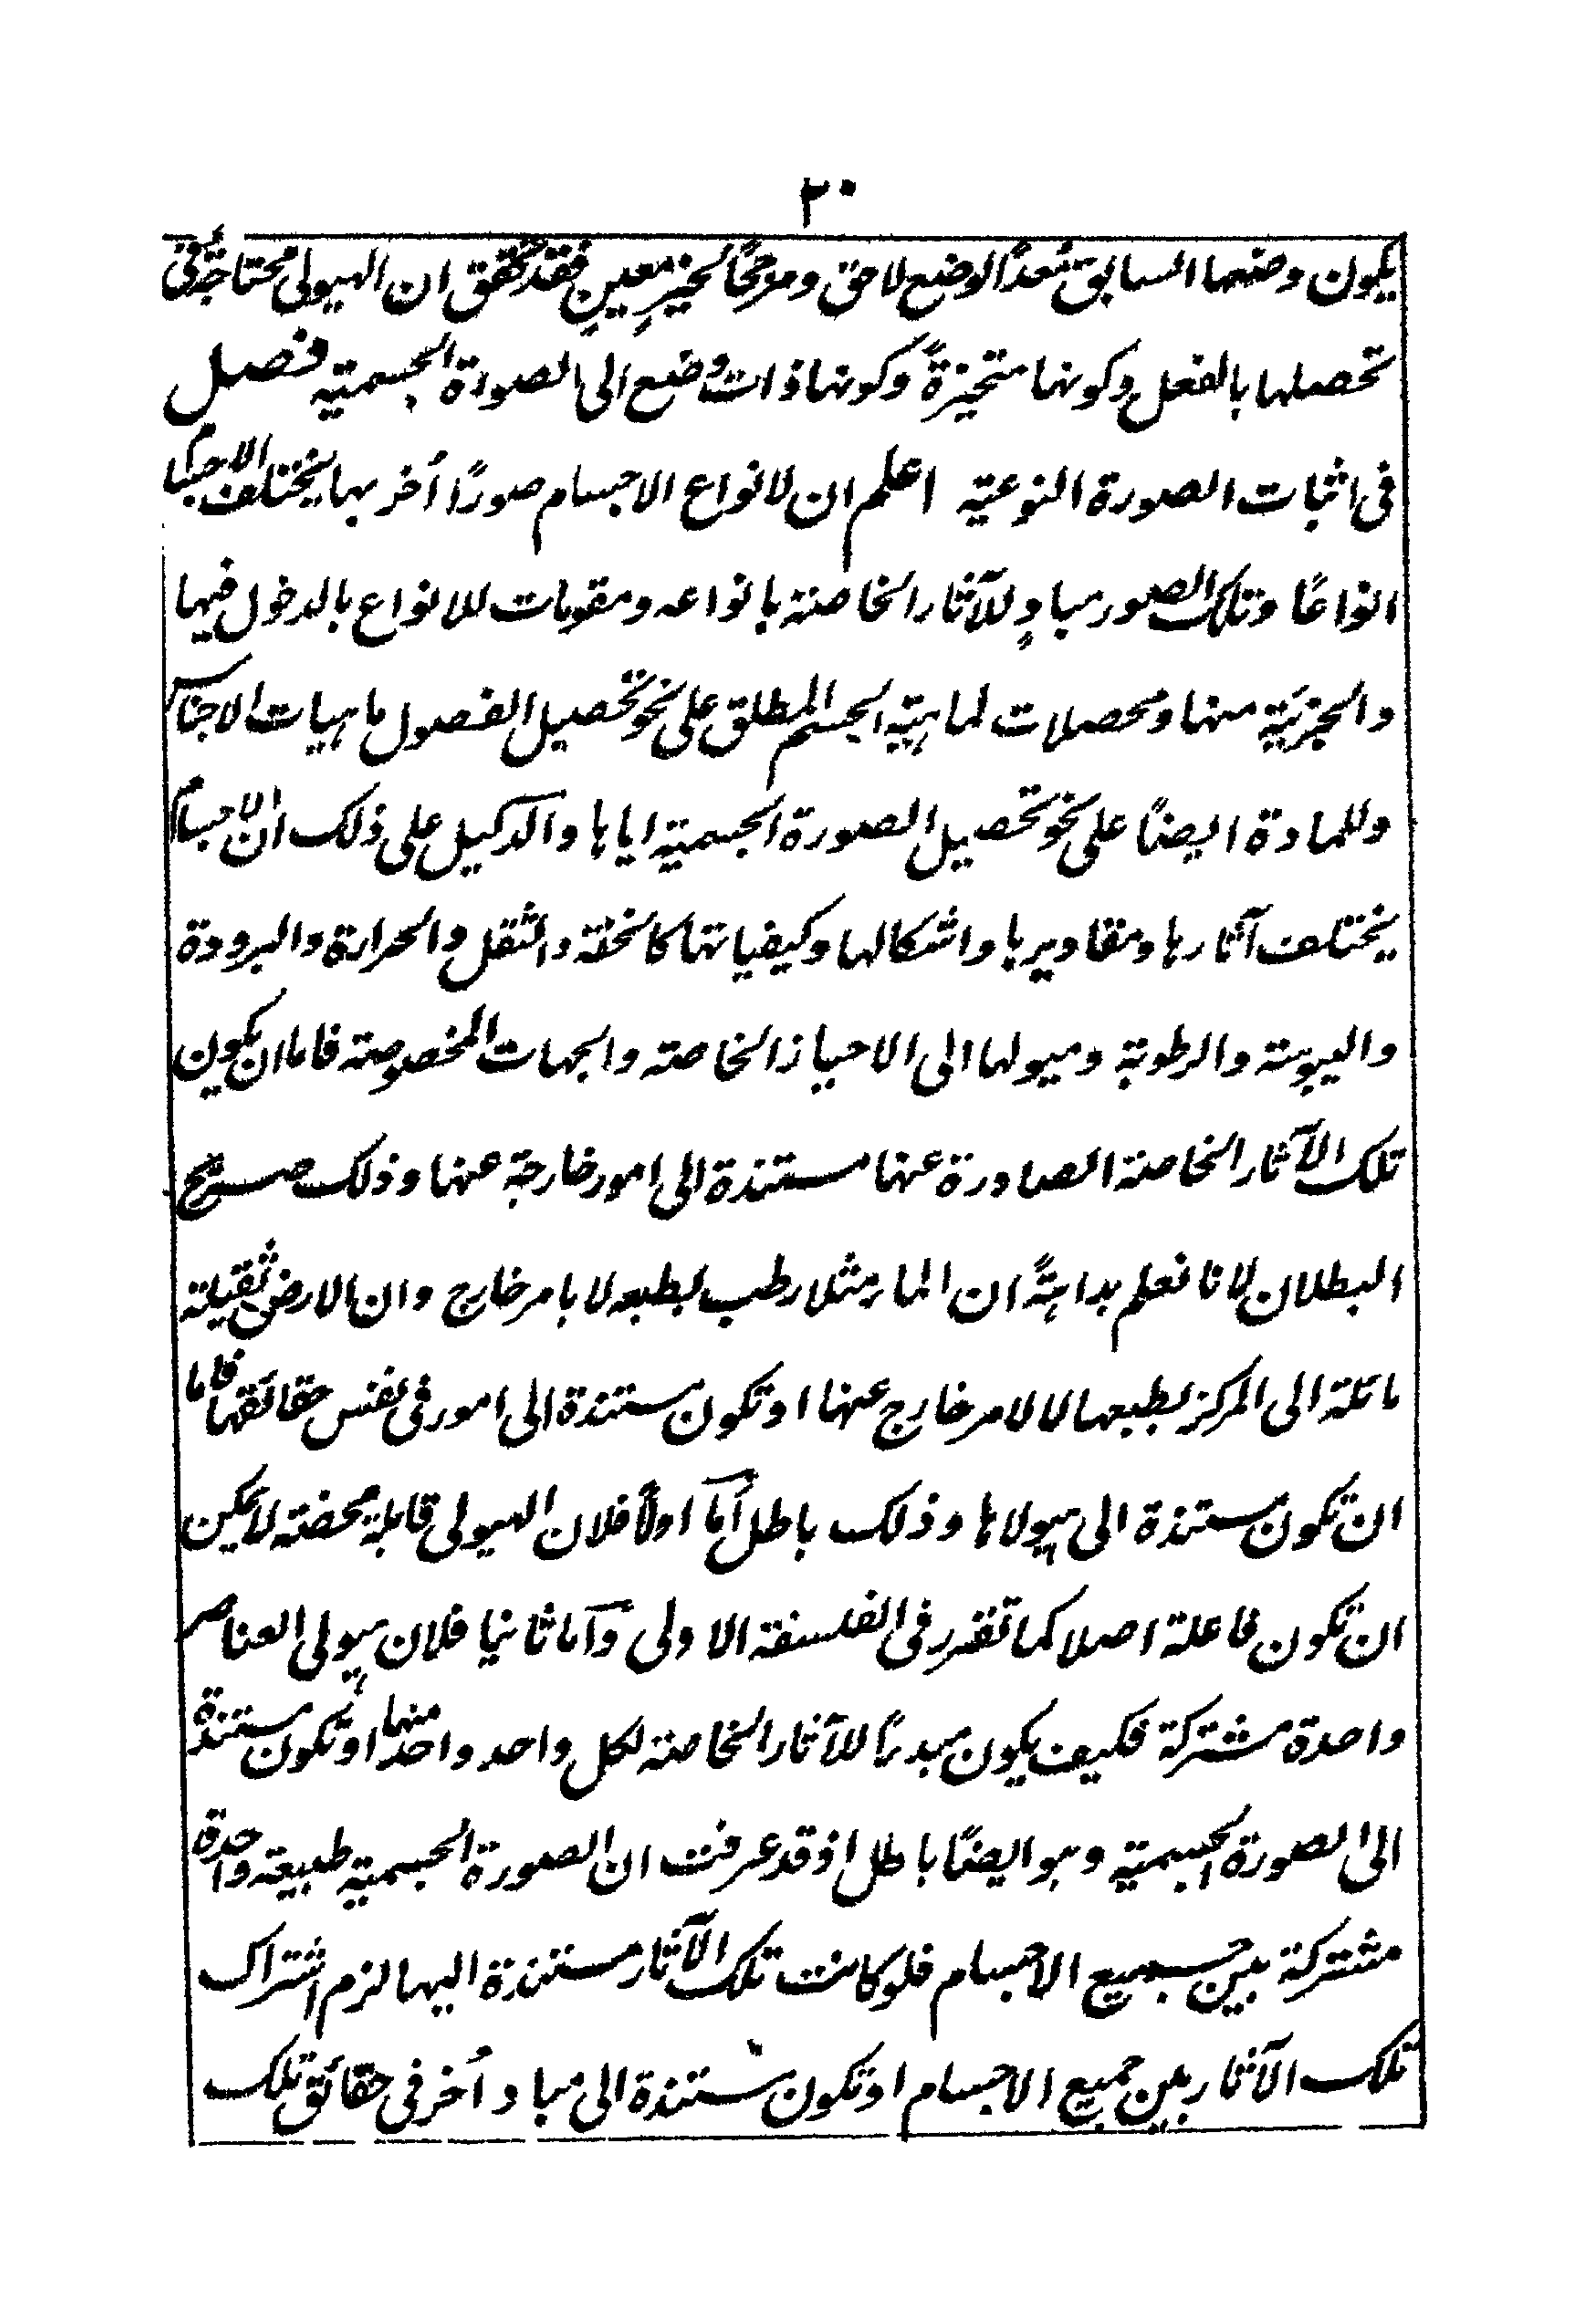 ٢٠
يكون وضعها السابق مُعدًّا لوضع لاحق ومرجحًا لحيزٍ معينٍ فقد تحقق ان الهيولى محتاجةٌ فى
تحصلها بالفعل وكونها متحيزةً وكونها ذات وضع الى الصورة الجسمية فصل
فى اثبات الصورة النوعية اعلم ان لانواع الاجسام صورًا أُخر بها يختلف الاجسام
انواعًا وتلك الصور مبادٍ للآثار الخاصة بانواعه ومقومات للانواع بالدخول فيها
والجزئية منها ومحصلات لماهية الجسم المطلق على نحو تحصيل الفصول ماهيات الاجناس
وللمادة ايضًا على نحو تحصيل الصورة الجسمية اياها والدليل على ذلك ان الاجسام
يختلف آثارها ومقاديرها واشكالها وكيفياتها كالخفة والثقل والحرارة والبرودة
واليبوسة والرطوبة وميولها الى الاحياز الخاصة والجهات المخصوصة فاما ان يكون
تلك الآثار الخاصة الصادرة عنها مستندة الى امور خارجة عنها وذلك صريح
البطلان لانا نعلم بداهةً ان الماء مثلا رطب بطبعه لا بامر خارج وان الارض ثقيلة
مائلة الى المركز بطبعها لا لامر خارج عنها او تكون مستندة الى امور فى نفس حقائقها فاما
ان تكون مستندة الى هيولاها وذلك باطل أمّا اولًا فلان الهيولى قابلة محضة لا يمكن
ان تكون فاعلة اصلا كما تقرر فى الفلسفة الاولى وأما ثانيا فلان هيولى العناصر
واحدة مشتركة فكيف يكون مبدءًا للآثار الخاصة لكل واحد واحد منها او تكون مستندة
الى الصورة الجسمية وهو ايضًا باطل اذ قد عرفت ان الصورة الجسمية طبيعة واحدة
مشتركة بين جميع الاجسام فلو كانت تلك الآثار مستندة اليها لزم اشتراك
تلك الآثار بين جميع الاجسام او تكون مستندة الى مباد أُخر فى حقائق تلك